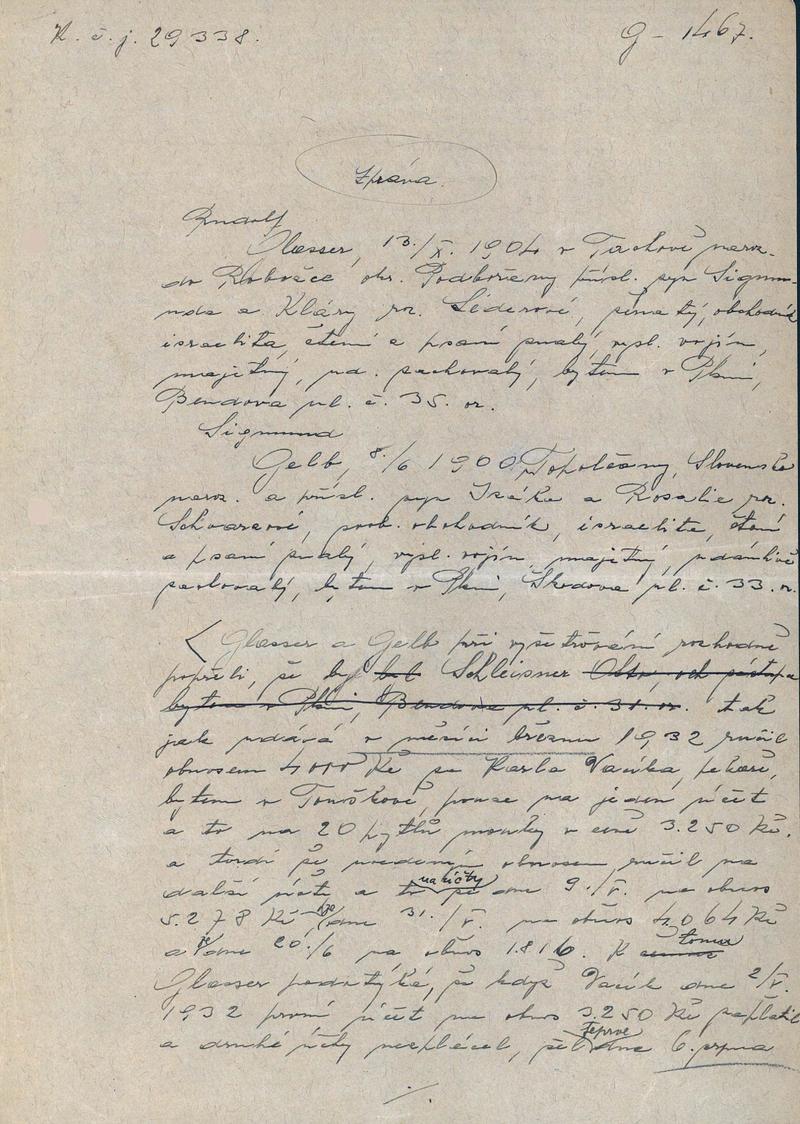 K. č. j. 29338.
G - 1467.
Zpráva.
Rudolf
Glasser, 13./X. 1904 v Tachově naroz.
do okr. Podbořany přísl. syn Sigmu-
nda a Kláry roz. Léderové, ženatý, obchodník
israelita, čtení a psaní znalý, vysl. vojín,
majetný, ud. zachovalý, bytem v Plzni,
Bendova ul. č. 35. or.
Sigmund
Gelb, 8./6 1900 v Topolčany, Slovensko
naroz. a přísl. syn Izáka a Rosalie roz.
Schwarzové, svob. obchodník, israelita, čtení
a psaní znalý, vysl. vojín, majetný, udánlivě
zachovalý, bytem v Plzni, Škodova ul. č. 33. or.
Glasser a Gelb při vyšetřování rozhodně
popřeli, že by byl Schleisner Otto, od
bytem v Plzni, Bendova ul. č. 31. or. tak
jak udává v měsíci březnu 1932 ručil
obnosem 4000 Kč za Karla Vacíka, pekaře,
bytem v Touškově, pouze na jeden účet
a to na 20 pytlů mouky v ceně 3.250 Kč.
a tvrdí že uvedeným obnosem ručil na
další účty a to na účty ze dne 9./V. na obnos
5.278 Kč, ze dne 31./V. na obnos 4.064 Kč
a ze dne 20./6 na obnos 1.816. K tomu
Glasser podotýká, že když Vacík dne 2/V.
1932 první účet na obnos 3.250 Kč zaplatil
a druhé účty nezplácel, šel teprve dne 6. srpna